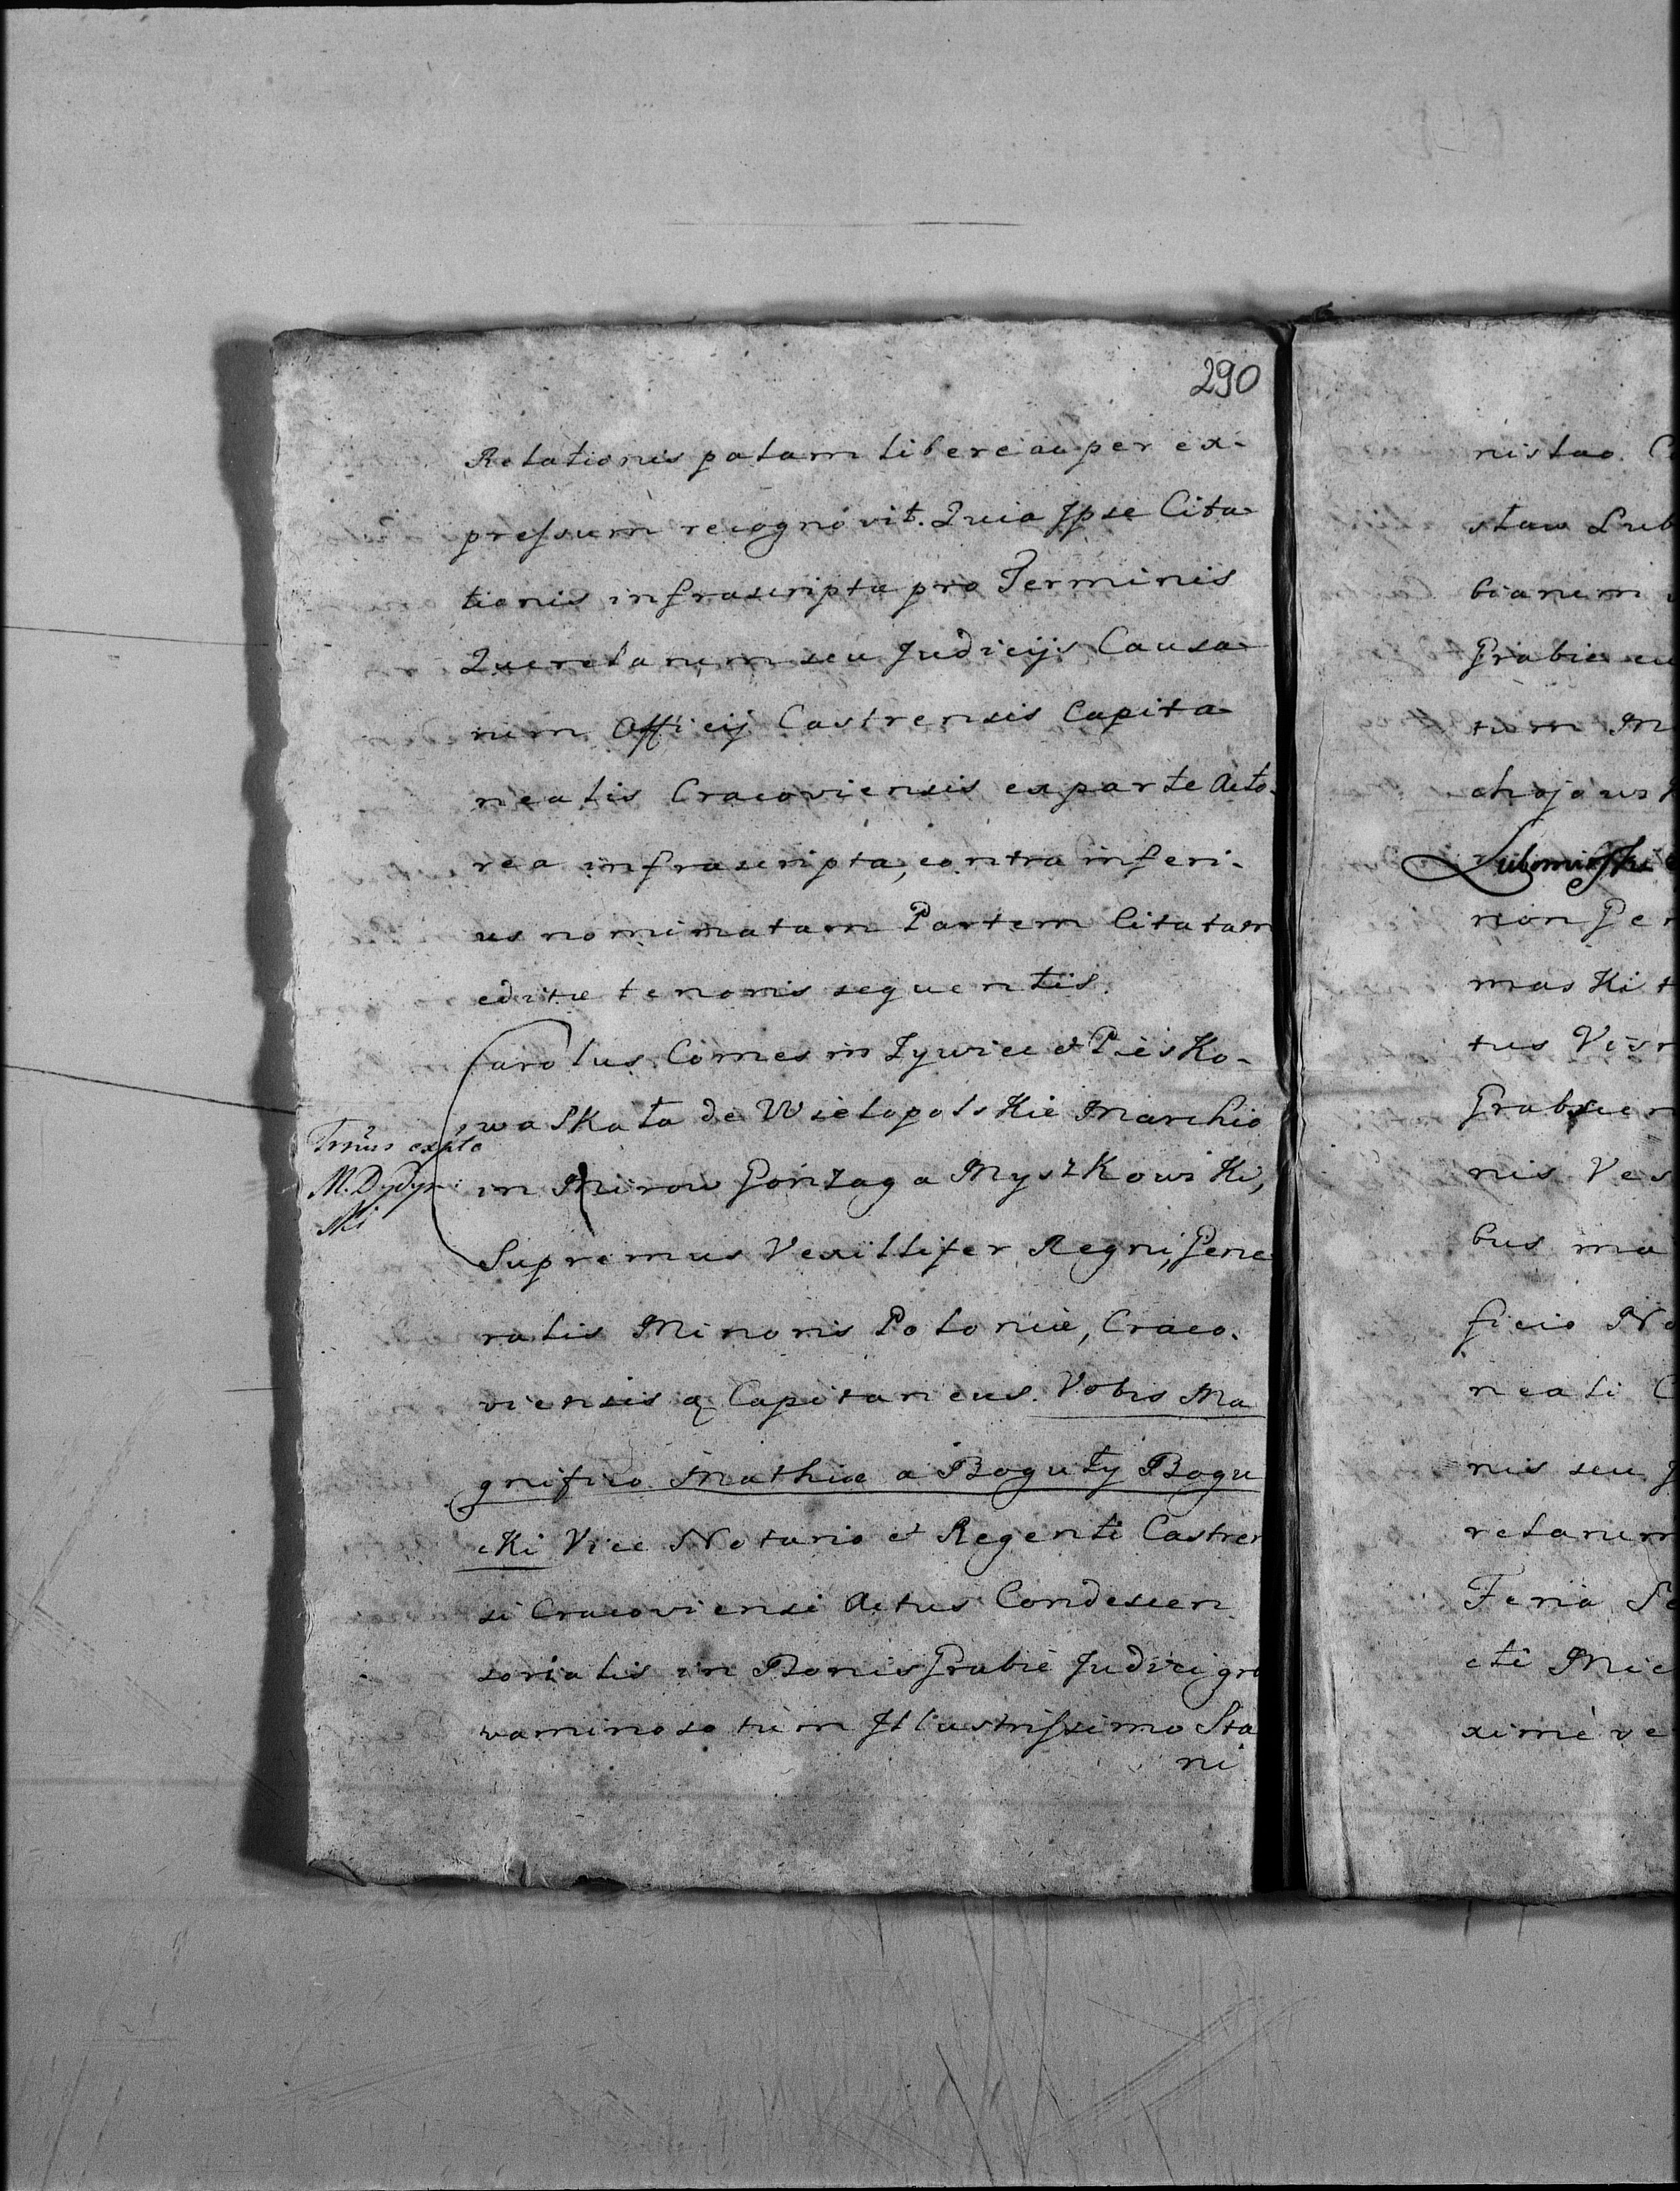 290
Relationis palam libere ac per ex-
pressum recognovit. Quia Ipse Cita-
tionis infrascripta pro Terminis
Querelarum seu Judicijs Causa-
rum Officij Castrensis Capita-
nealis Cracoviensis ex parte Acto-
rea infrascripta, contra inferi-
us nominatam Partem Citatam
editæ tenoris sequentis.
Carolus Comes in Zywiec et Piesko-
wa Skała de Wielopolskie Marchio
in Mirow Gonzaga Myszkowski,
Supremus Vexillifer Regni, Gene
ralis Minoris Poloniæ, Craco-
viensis q Capitaneus. Vobis Ma
gnifico Mathiæ a Boguty Bogu
cki Vice Notario et Regenti Castren
si Cracoviensi Actus Condescen
sorialis in Bonis Grabie Judici gra
vaminoso tum Illustrissimo Sta
ni
Trnus expto
M. Dydyn:
ski
nistao. C
staw Lub
bianum
Grabie cu
tum M
chajows
Lubomirski
non Ge
maski t
tus Ves
Grabien
nis Ves
bus ma
ficio No
neali C
nis seu J
relarum
Feria Se
cti Mic
ximè ve